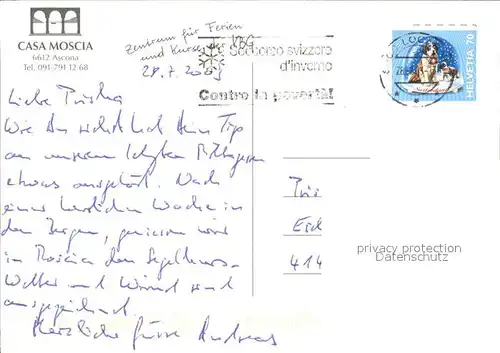 CASA MOSCIA
6612 Ascona
Tel. 091-791 12 68
Zentrum für Ferien
und Kurse der VBG
29.7.2003
Soccorso svizzero
d'inverno
Contro la povertà!
HELVETIA 70
Liebe Priska
Wie Du siehst hat Dein Tip
an unserem letzten
etwas ausgelöst. Nach
einer herrlichen Woche in
den Bergen, geniessen wir
in Moscia den Segelkurs.
Wetter und Wind sind
ausgezeichnet.
Herzliche Grüsse Andreas
Pris
Eid
414
privacy protection
Datenschutz